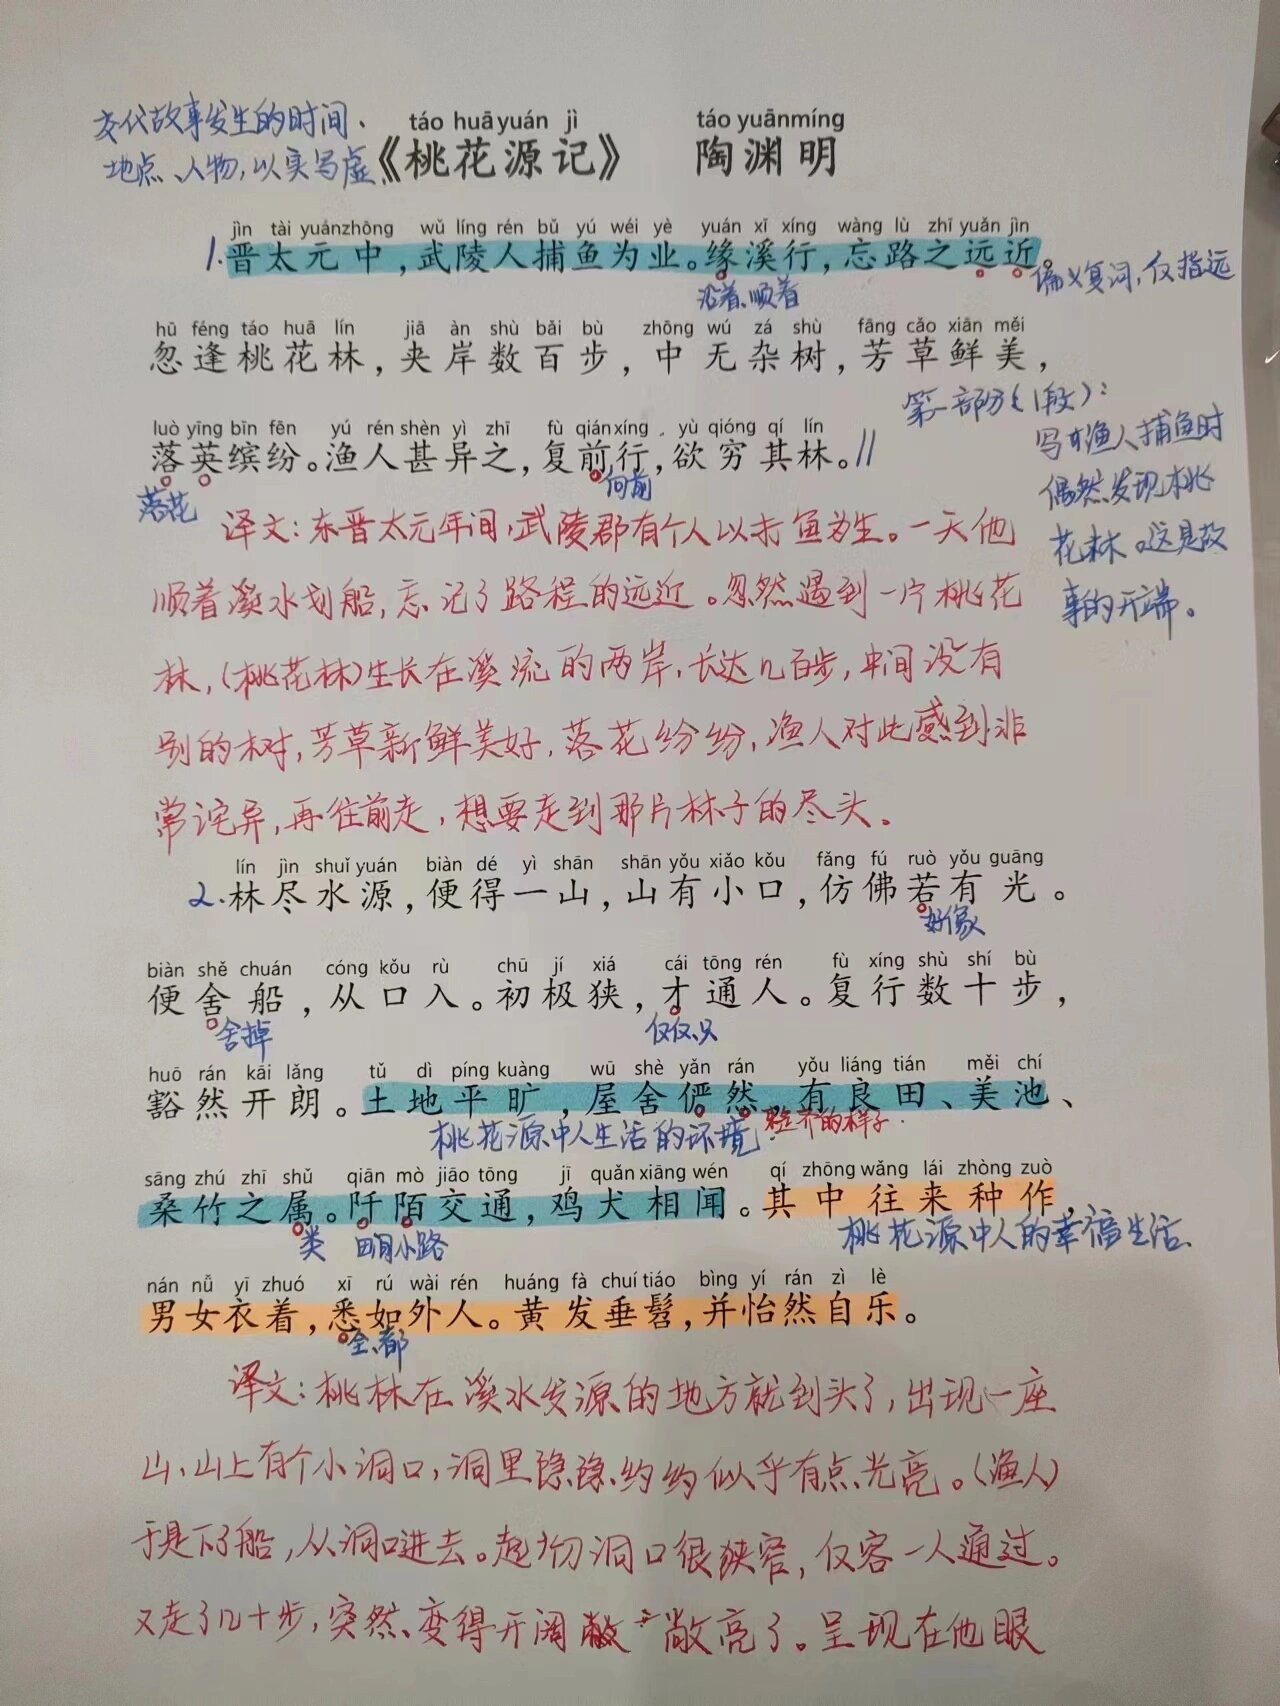 交代故事发生的时间、
地点、人物,以实写虚
táo huā yuán jì táo yuānmíng
《桃花源记》 陶渊明
jìn tài yuánzhōng wǔ líng rén bǔ yú wéi yè yuán xī xíng wàng lù zhī yuǎn jìn
1.晋太元中,武陵人捕鱼为业。缘溪行,忘路之远近。
沿着、顺着
偏义复词,仅指远
hū féng táo huā lín jiā àn shù bǎi bù zhōng wú zá shù fāng cǎo xiān měi
忽逢桃花林,夹岸数百步,中无杂树,芳草鲜美,
luò yīng bīn fēn yú rén shèn yì zhī fù qiánxíng, yù qióng qí lín
落英缤纷。渔人甚异之,复前行,欲穷其林。//
落花
向前
第一部分(1段):
写渔人捕鱼时
偶然发现桃
花林。这是故
事的开端。
译文:东晋太元年间,武陵郡有个人以打鱼为生。一天他
顺着溪水划船,忘记了路程的远近。忽然遇到一片桃花
林,(桃花林)生长在溪流的两岸,长达几百步,中间没有
别的树,芳草新鲜美好,落花纷纷,渔人对此感到非
常诧异,再往前走,想要走到那片林子的尽头。
lín jìn shuǐ yuán biàn dé yì shān shān yǒu xiǎo kǒu fǎng fú ruò yǒu guāng
2.林尽水源,便得一山,山有小口,仿佛若有光。
好像
biàn shě chuán cóng kǒu rù chū jí xiá cái tōng rén fù xíng shù shí bù
便舍船,从口入。初极狭,才通人。复行数十步,
舍掉
仅仅、只
huō rán kāi lǎng tǔ dì píng kuàng wū shè yǎn rán yǒu liáng tián měi chí
豁然开朗。土地平旷,屋舍俨然,有良田、美池、
桃花源中人生活的环境
整齐的样子
sāng zhú zhī shǔ qiān mò jiāo tōng jī quǎn xiāng wén qí zhōng wǎng lái zhòng zuò
桑竹之属。阡陌交通,鸡犬相闻。其中往来种作,
类
田间小路
桃花源中人的幸福生活、
nán nǚ yī zhuó xī rú wài rén huáng fà chuí tiáo bìng yí rán zì lè
男女衣着,悉如外人。黄发垂髫,并怡然自乐。
全、都
译文:桃林在溪水发源的地方就到头了,出现一座
山,山上有个小洞口,洞里隐隐约约似乎有点光亮。(渔人)
于是下了船,从洞口进去。起初洞口很狭窄,仅容一人通过。
又走了几十步,突然变得开阔敞亮了。呈现在他眼